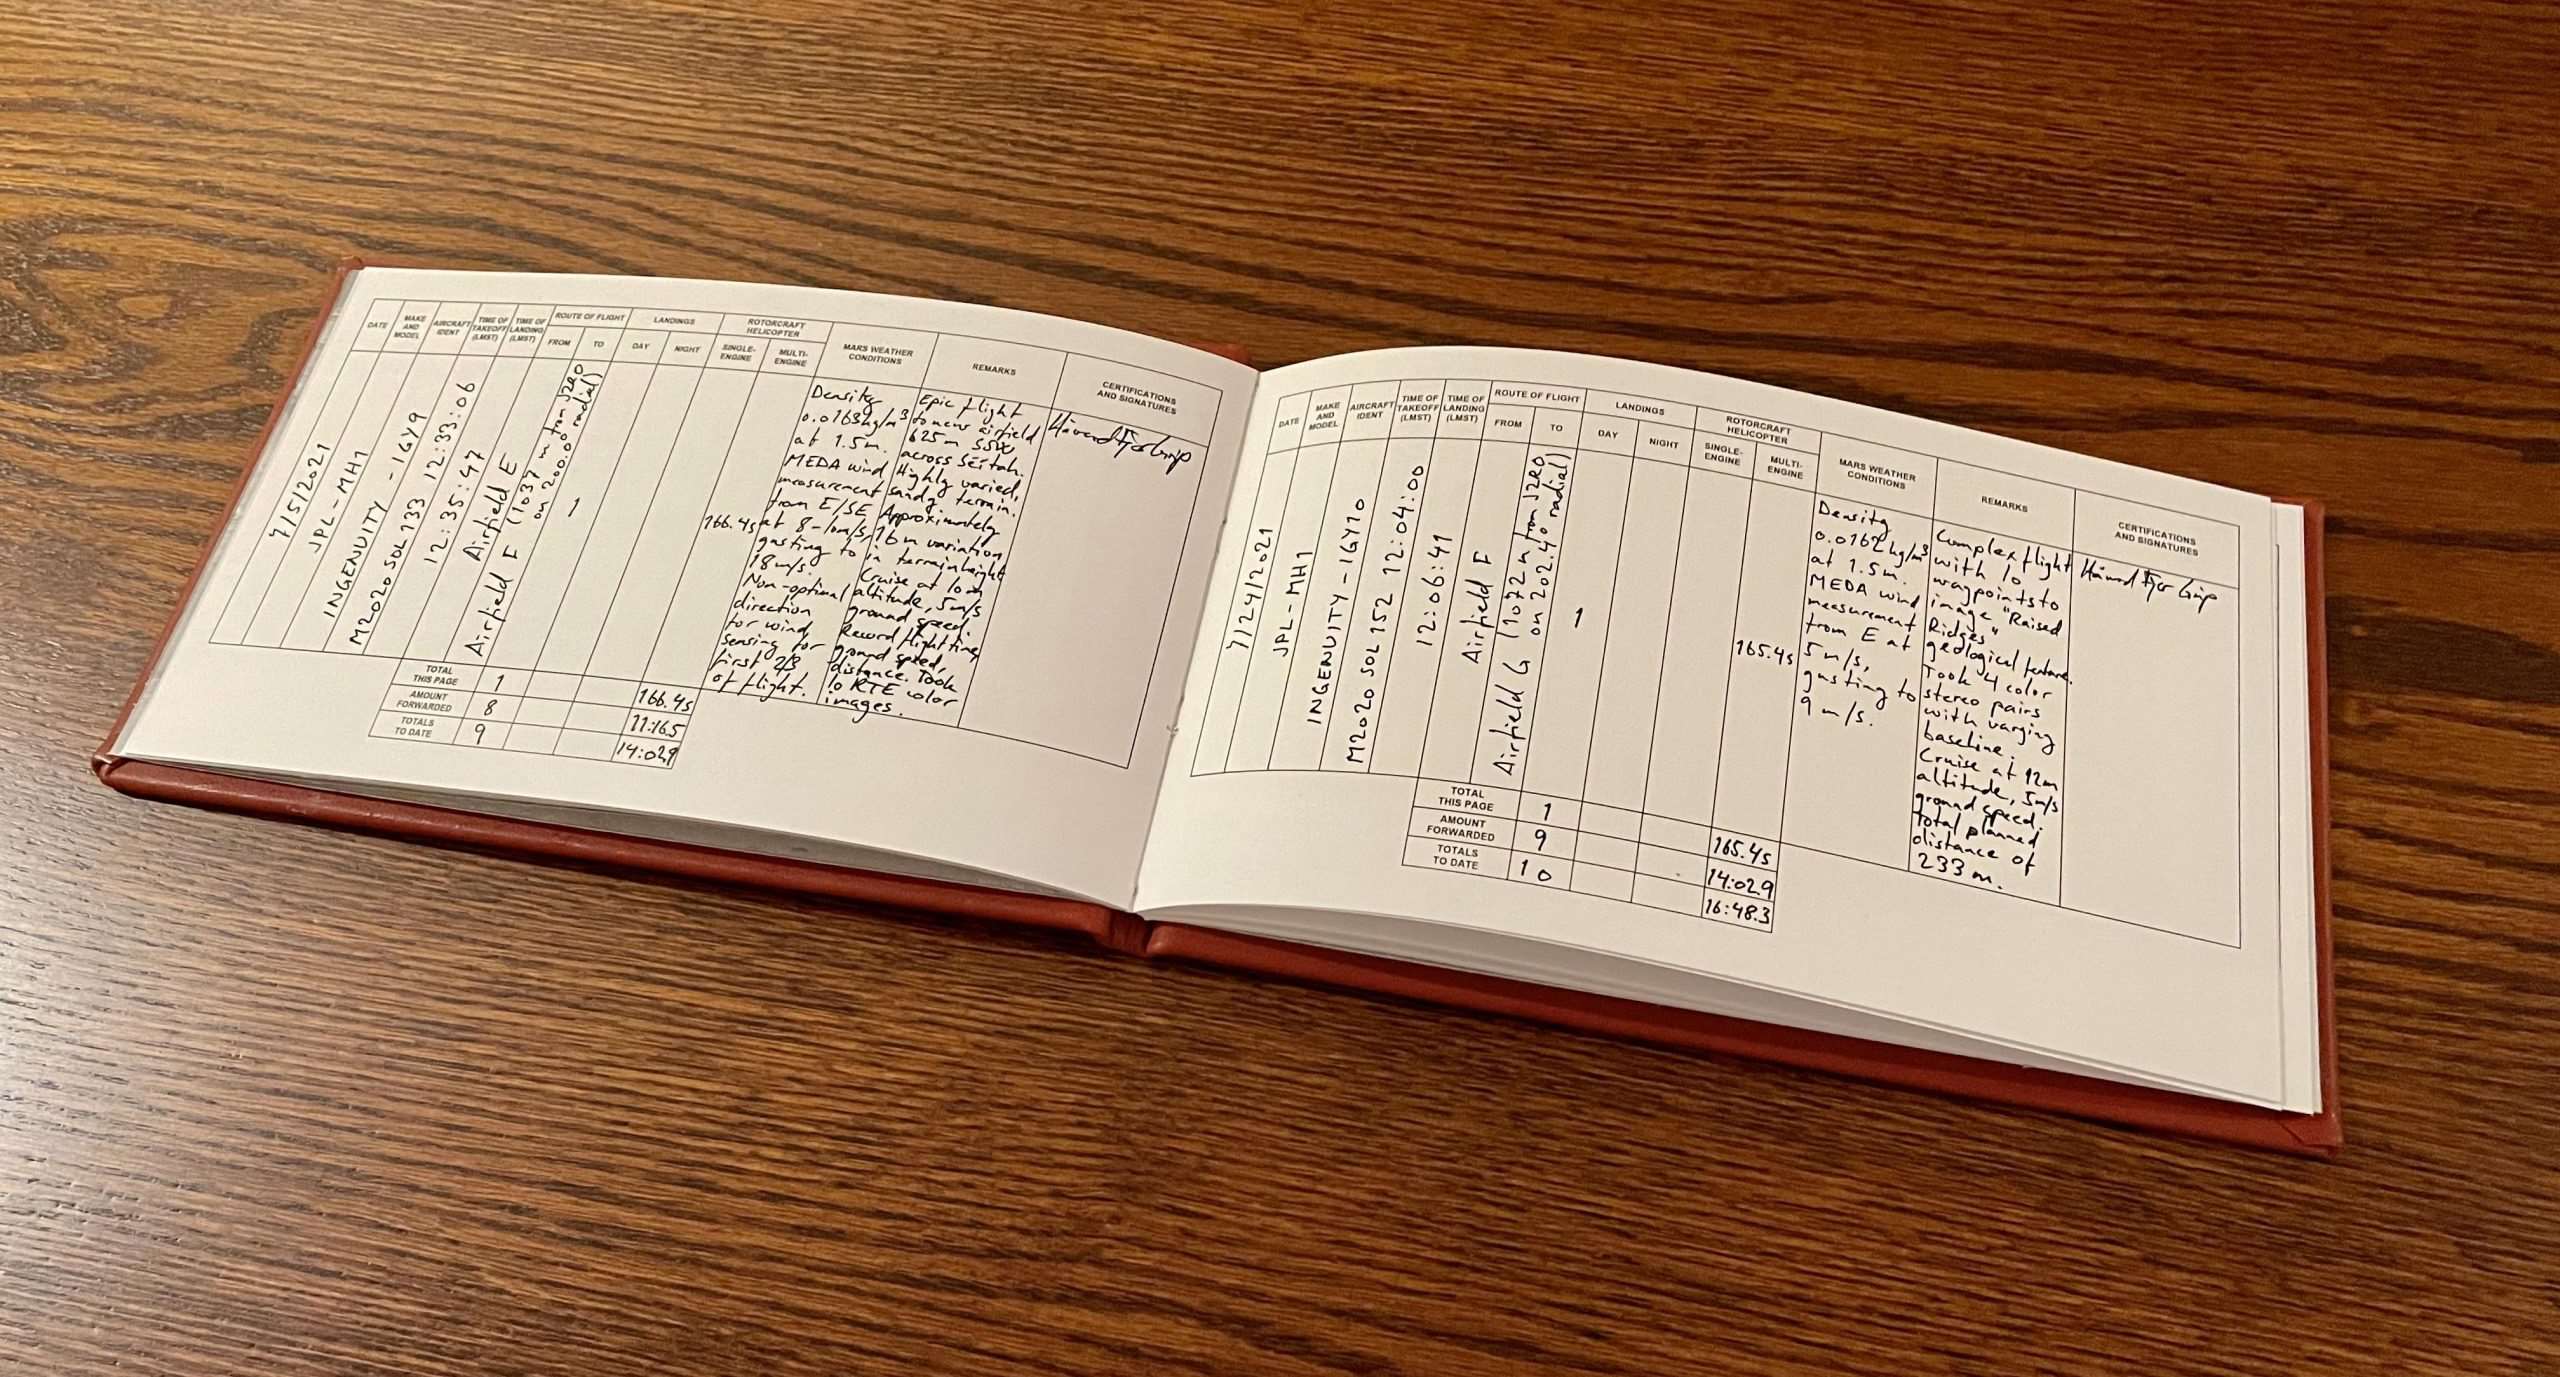 DATE
MAKE
AND
MODEL
AIRCRAFT
IDENT
TIME OF
TAKEOFF
(LMST)
TIME OF
LANDING
(LMST)
ROUTE OF FLIGHT
FROM
TO
LANDINGS
DAY
NIGHT
ROTORCRAFT
HELICOPTER
SINGLE-
ENGINE
MULTI-
ENGINE
MARS WEATHER
CONDITIONS
REMARKS
CERTIFICATIONS
AND SIGNATURES
7/5/2021
JPL-MH1
INGENUITY - IGY9
M2020 SOL 133 12:33:06
12:35:47
Airfield E
Airfield F (1037 m from JZRO
on 200.0° radial)
1
166.4s
Density
0.0163kg/m³
at 1.5m.
MEDA wind
measurement
from E/SE
at 8-10m/s,
gusting to
18m/s.
Non-optimal
direction
for wind
sensing for
first 2/3
of flight.
Epic flight
to new airfield
625m SSW
across Séítah.
Highly varied,
sandy terrain.
Approximately
16m variation
in terrain height
Cruise at 10m
altitude, 5m/s
ground speed.
Record flight time,
ground speed,
distance. Took
10 RTE color
images.
Håvard Fjær Grip
TOTAL
THIS PAGE
1
166.4s
AMOUNT
FORWARDED
8
11:16.5
TOTALS
TO DATE
9
14:02.9
DATE
MAKE
AND
MODEL
AIRCRAFT
IDENT
TIME OF
TAKEOFF
(LMST)
TIME OF
LANDING
(LMST)
ROUTE OF FLIGHT
FROM
TO
LANDINGS
DAY
NIGHT
ROTORCRAFT
HELICOPTER
SINGLE-
ENGINE
MULTI-
ENGINE
MARS WEATHER
CONDITIONS
REMARKS
CERTIFICATIONS
AND SIGNATURES
7/24/2021
JPL-MH1
INGENUITY-IGY10
M2020 SOL 152 12:04:00
12:06:41
Airfield F
Airfield G (1072m from JZRO
on 202.4° radial)
1
165.4s
Density
0.0162kg/m³
at 1.5m.
MEDA wind
measurement
from E at
5m/s,
gusting to
9m/s.
Complex flight
with 10
waypoints to
image "Raised
Ridges"
geological feature.
Took 4 color
stereo pairs
with varying
baseline.
Cruise at 12m
altitude, 5m/s
ground speed.
Total planned
distance of
233m.
Håvard Fjær Grip
TOTAL
THIS PAGE
1
165.4s
AMOUNT
FORWARDED
9
14:02.9
TOTALS
TO DATE
10
16:48.3